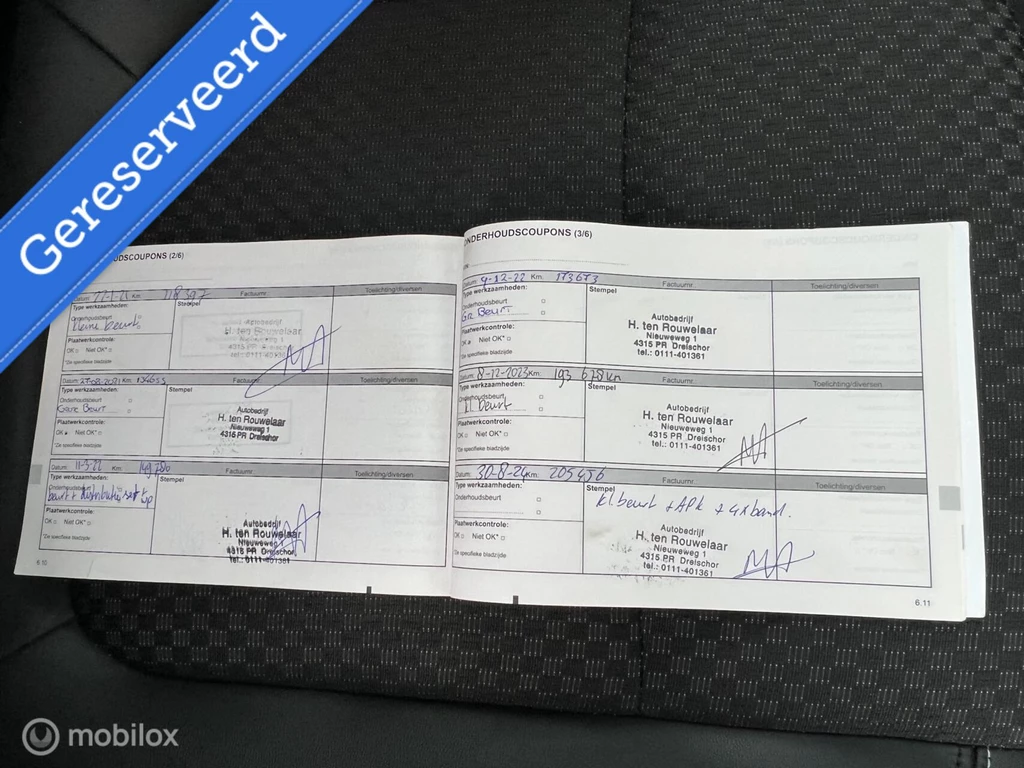 Gereserveerd
DSCOUPONS (2/6)
Datum: Km. 118397 Factuurnr. Toelichting/diversen
Type werkzaamheden: Stempel
Onderhoudsbeurt
kleine beurt
Plaatwerkcontrole:
OK Niet OK*
*Zie specifieke bladzijde
Autobedrijf
H. ten Rouwelaar
Nieuweweg 1
4315 PR Dreischor
tel.: 0111-401361
Datum: 27-08-2021 Km. Factuurnr. Toelichting/diversen
Type werkzaamheden: Stempel
Onderhoudsbeurt
Grote Beurt
Plaatwerkcontrole:
OK Niet OK*
*Zie specifieke bladzijde
Autobedrijf
H. ten Rouwelaar
Nieuweweg 1
4315 PR Dreischor
Datum: 11-3-22 Km. Factuurnr. Toelichting/diversen
Type werkzaamheden: Stempel
Onderhoudsbeurt
beurt + distributieset
Plaatwerkcontrole:
OK Niet OK*
*Zie specifieke bladzijde
Autobedrijf
H. ten Rouwelaar
Nieuweweg 1
4315 PR Dreischor
tel.: 0111-401361
6.10
ONDERHOUDSCOUPONS (3/6)
Datum: 9-12-22 Km. 173673 Factuurnr. Toelichting/diversen
Type werkzaamheden: Stempel
Onderhoudsbeurt
Gr. Beurt
Plaatwerkcontrole:
OK Niet OK*
*Zie specifieke bladzijde
Autobedrijf
H. ten Rouwelaar
Nieuweweg 1
4315 PR Dreischor
tel.: 0111-401361
Datum: 8-12-2023 Km. 193 628 km Factuurnr. Toelichting/diversen
Type werkzaamheden: Stempel
Onderhoudsbeurt
kl. beurt
Plaatwerkcontrole:
OK Niet OK*
*Zie specifieke bladzijde
Autobedrijf
H. ten Rouwelaar
Nieuweweg 1
4315 PR Dreischor
tel.: 0111-401361
Datum: 30-8-24 Km. 205456 Factuurnr. Toelichting/diversen
Type werkzaamheden: Stempel
Onderhoudsbeurt
kl. beurt + APK + 4x band.
Plaatwerkcontrole:
OK Niet OK*
*Zie specifieke bladzijde
Autobedrijf
H. ten Rouwelaar
Nieuweweg 1
4315 PR Dreischor
tel.: 0111-401361
6.11
mobilox